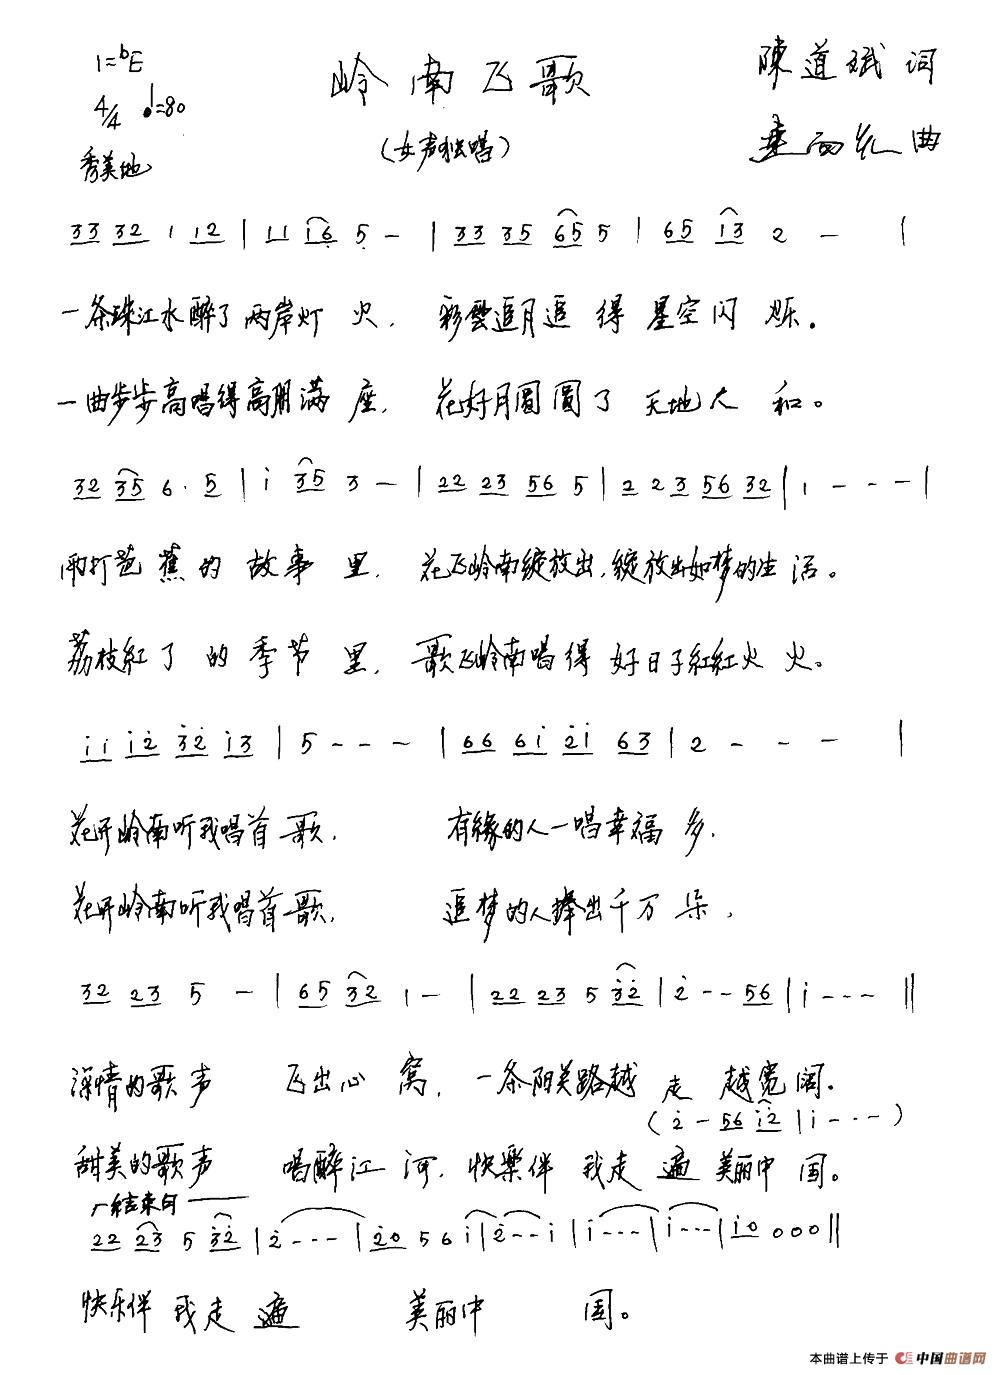 1=bE 岭南飞歌 陳道斌 词
4/4 ♩=80 (女声独唱) 曲
秀美地
33 32 1 12 | 11 16 5 - | 33 35 65 5 | 65 13 2 - |
一条珠江水醉了两岸灯火， 彩雲追月追得星空闪烁。
一曲步步高唱得高朋满座， 花好月圓圓了天地人和。
32 35 6· 5 | i 35 3 - | 22 23 56 5 | 2 2 3 56 32 | 1 - - - |
雨打芭蕉的故事里， 花飞岭南绽放出，绽放出如梦的生活。
荔枝紅了的季节里， 歌飞岭南唱得好日子紅紅火火。
ii i2̇ 3̇2̇ i3 | 5 - - - | 66 6i 2̇i 63 | 2 - - - |
花开岭南听我唱首歌， 有緣的人一唱幸福多，
花开岭南听我唱首歌， 追梦的人捧出千万朵，
32 23 5 - | 65 32 1 - | 22 23 5 3̇2̇ | 2̇ - - 56 | i - - - ‖
深情的歌声 飞出心窝，一条阳关路越走越宽阔。
(2̇ - 56 i2̇ | i - - - )
甜美的歌声 唱醉江河，快樂伴我走遍美丽中国。
结束句
22 23 5 3̇2̇ | 2̇ - - - | 2̇0 5 6 i | 2̇ - - i | i - - - | i - - - | i0 0 0 0 ‖
快乐伴我走遍 美丽中 国。
本曲谱上传于 中国曲谱网